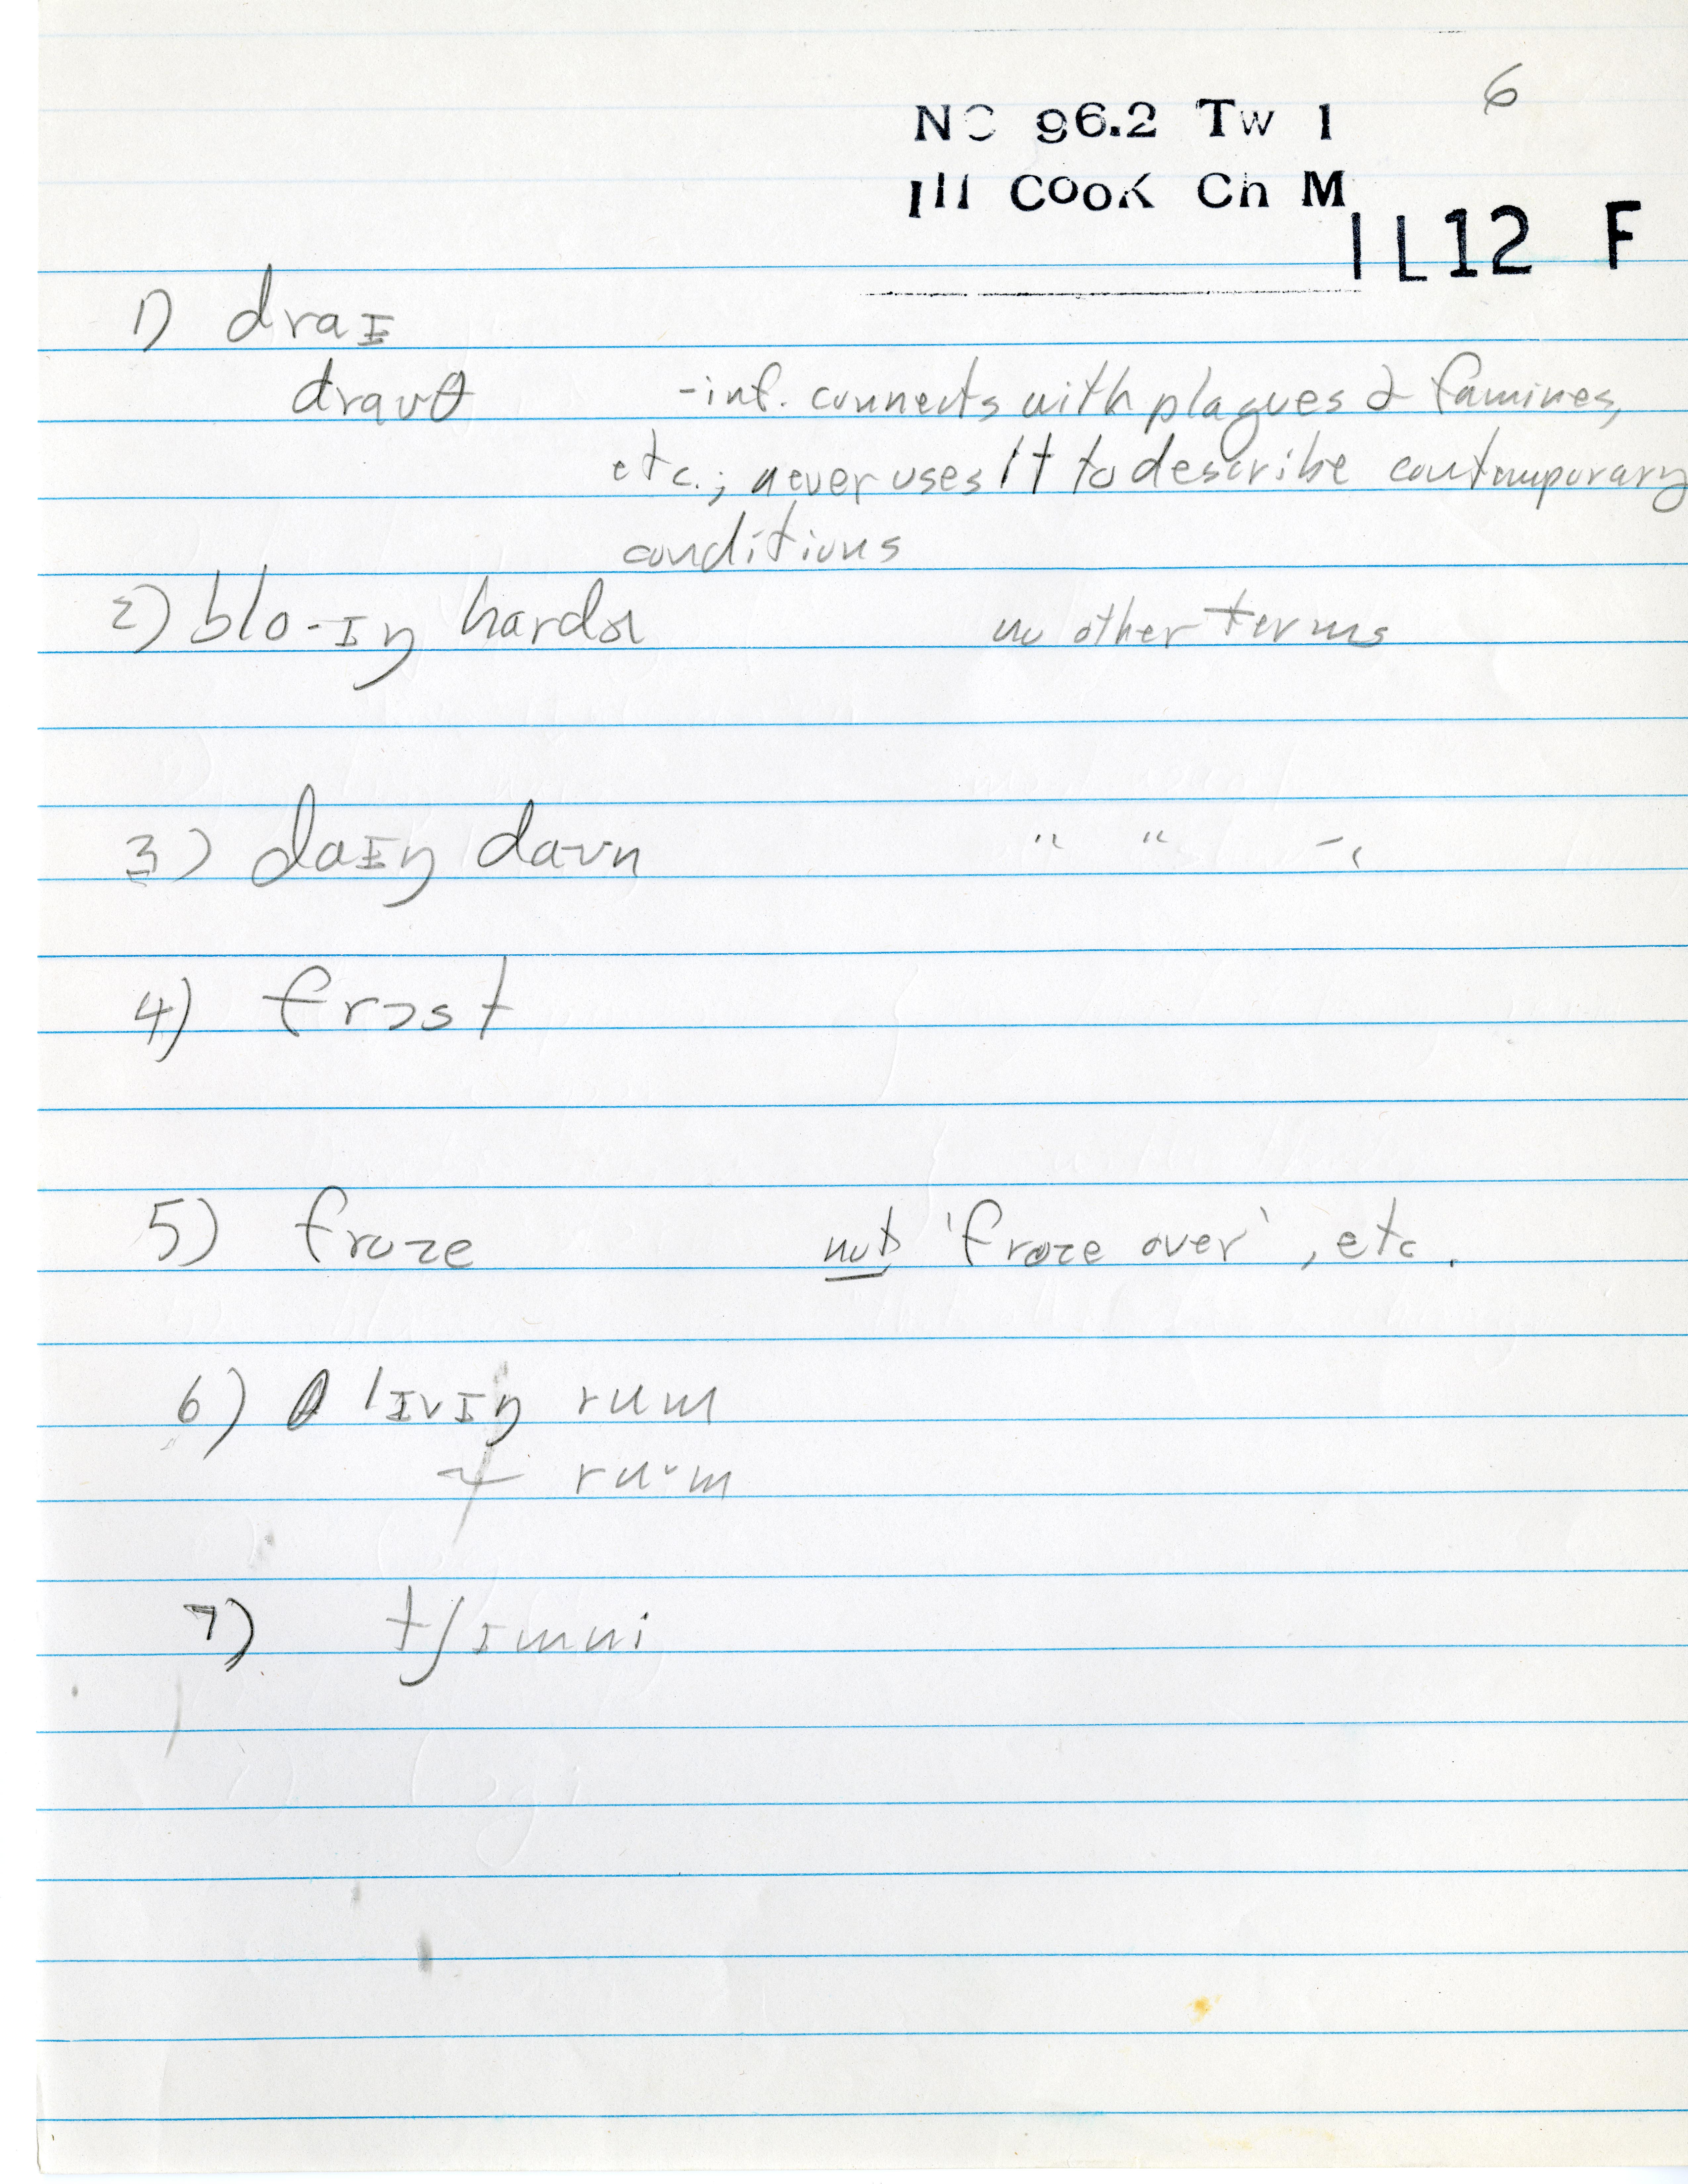 6
NC 96.2 Tw 1
Ill Cook Ch M
IL12 F
1) draɪ
draʊθ -inf. connects with plagues & famines,
etc.; never uses it to describe contemporary
conditions
2) blo·ɪŋ hardɚ no other terms
3) daɪŋ daʊn " " "
4) frɔst
5) froze not 'froze over', etc.
6) lɪvɪŋ rum
~ ruˑm
7) tʃɪmni